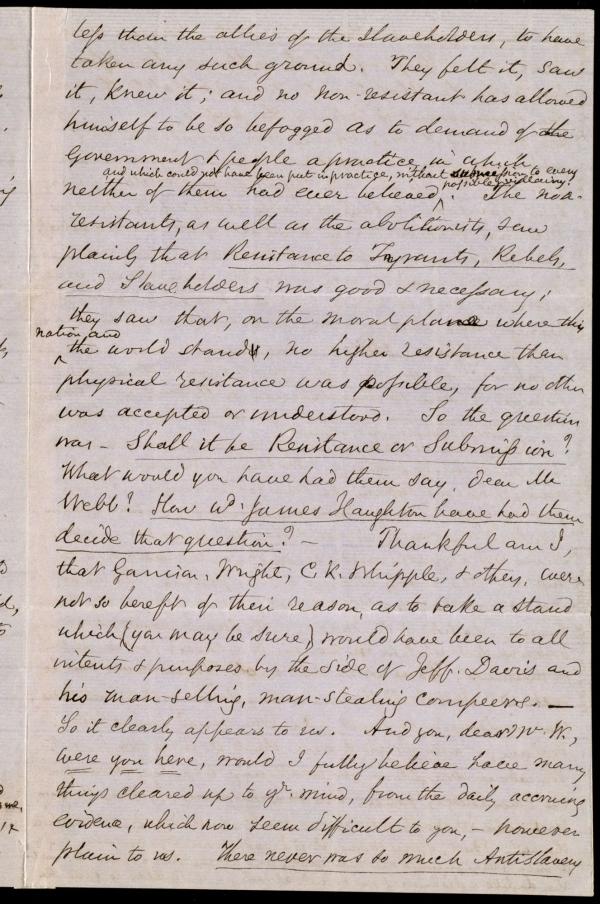 less than the allies of the Slaveholders, to have
taken any such ground. They felt it, saw
it, knew it; and no Non-resistant has allowed
himself to be so befogged as to demand of the
Government & people a practice in which
and which could not have been put in practice, without from to every
possible villainy.
neither of them had ever believed ^. The non-
resistants, as well as the abolitionists, saw
plainly that Resistance to Tyrants, Rebels,
and Slaveholders was good & necessary;
they saw that, on the moral plane where this
nation and
^ the world stands, no higher resistance than
physical resistance was possible, for no other
was accepted or understood. So the question
was – Shall it be Resistance or Submission?
What would you have had them say, dear Mr
Webb? How wd. James Haughton have had them
decide that question? – Thankful am I,
that Garrison, Wright, C. K. Whipple, & others, were
not so bereft of their reason, as to take a stand
which (you may be sure) would have been to all
intents & purposes by the side of Jeff. Davis and
his man-selling, man-stealing compeers. –
So it clearly appears to us. And you, dear Mr. W.,
were you here, would I fully believe have many
things cleared up to yr. mind, from the daily accruing
evidence, which now seem difficult to you, – however
plain to us. There never was so much Antislavery